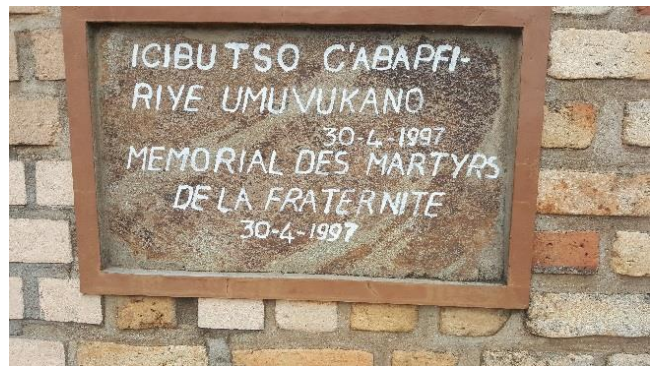 ICIBUTSO C'ABAPFI-
RIYE UMUVUKANO
30-4-1997
MEMORIAL DES MARTYRS
DE LA FRATERNITE
30-4-1997